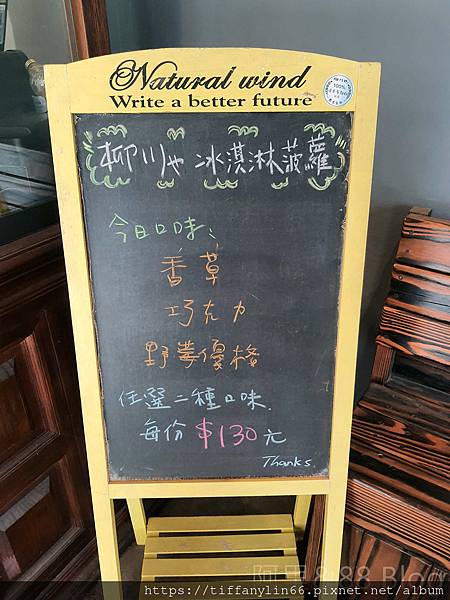 Natural wind
Write a better future
100%
柳川や 冰淇淋菠蘿
今日口味:
香草
巧克力
野莓優格
任選二種口味.
每份 $130元
Thanks.
阿里&88 Blog
https://tiffanylin66.pixnet.net/album